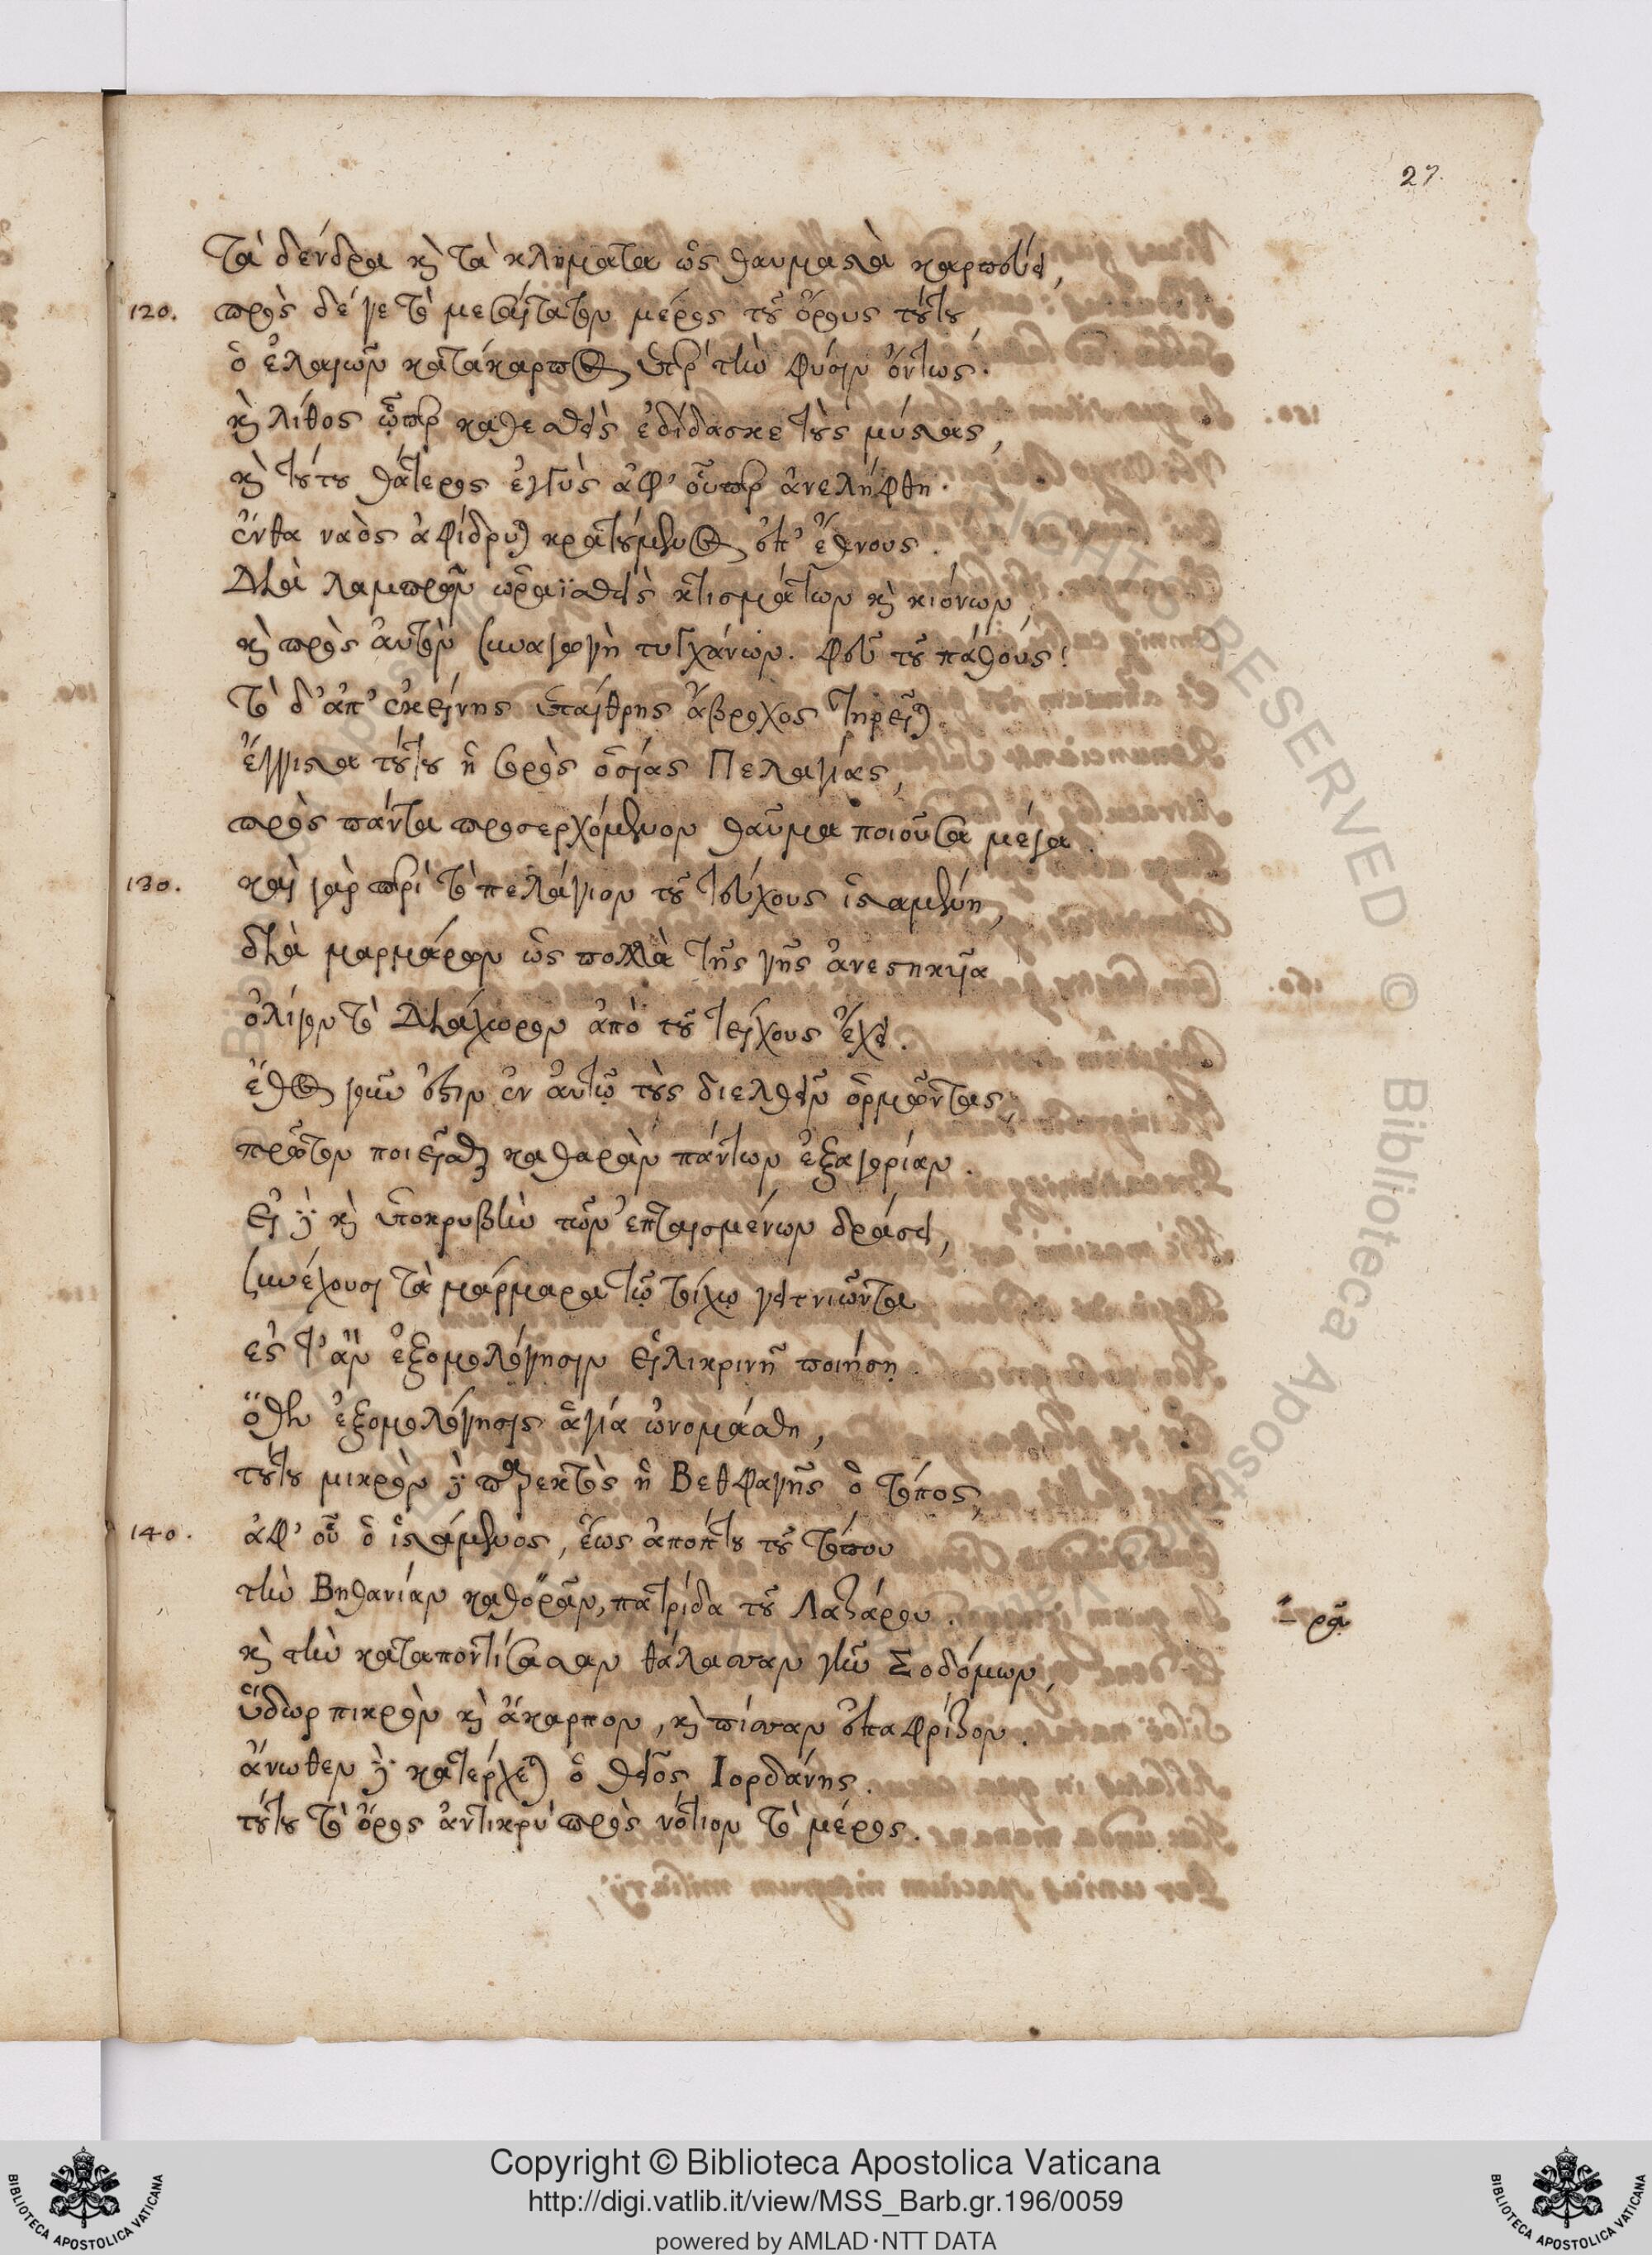 27.
Τὰ δένδρα κὴ τὰ κλήματα ὡς θαυμαστὰ καρπεύει,
120. πρὸς δέ γε τὸ μεσαίτατον μέρος τοῦ ὄρους τούτου
ὁ ἐλαιῶν κατάκαρπος ὑπὲρ τὴν φύσιν ὄντως.
κὴ λίθος ᾧπερ καθεσθεὶς ἐδίδασκε τοὺς μύστας,
κὴ τούτου θάτερος ἐγγὺς ἀφ' οὗπερ ἀνελήφθη.
ἔνθα ναὸς ἀφίδρυται κρατούμενος ὑπ' ἔθνους.
Διὰ λαμπρῶν ὡραϊσθεὶς κτισμάτων κὴ κιόνων
κὴ πρὸς αὐτὸν συναγωγὴ τυγχάνων. φεῦ τοῦ πάθους!
τὸ δ' ἀπ' ἐκείνης ὑπαίθρης ἄβροχος τηρεῖται.
ἔγγιστα τούτου ἡ σορὸς ὁσίας Πελαγίας,
πρὸς πάντα προσερχόμενον θαῦμα ποιοῦσα μέγα.
130. καὶ γὰρ περὶ τὸ πελάγιον τοῦ τεύχους ἱσταμένη,
διὰ μαρμάρων ὡς πολλὰ τῆς γῆς ἀνεστηκυῖα
ὀλίγον τὸ Διάχωρον ἀπὸ τοῦ τείχους ἔχει.
ἔθος γοῦν ἐστιν ἐν αὐτῷ τοὺς διελθεῖν ὁρμῶντας,
πρῶτον ποιεῖσθαι καθαρὰν πάντων ἐξαγορίαν.
Εἰ δὲ κὴ ὑποκρυβὴν τῶν ἐπταισμένων δράσει,
συνέχουσι τὰ μάρμαρα τῷ τοίχῳ γειτνιῶντα
ἔς τ' ἂν ἐξομολόγησιν εἰλικρινῆ ποιήσῃ.
ὅθεν ἐξομολόγησις ἁγία ὠνομάσθη,
τούτου μικρὸν δὲ παρεκτὸς ἢ Βεθφαγῆς ὁ τόπος,
140. ἀφ' οὗ ὁ ἱστάμενος, ἕως ἀπόπτου τοῦ τόπου
τὴν Βηθανίαν καθορᾶν, πατρίδα τοῦ Λαζάρου.
– ρᾷ
κὴ τὴν καταποντίσασαν θάλασσαν γῆν Σοδόμων,
ὕδωρ πικρὸν κὴ ἄκαρπον, κὴ πίσσαν ἐπαφρίζον.
ἄνωθεν δὲ κατέρχεται ὁ θεῖος Ιορδάνης.
τούτου τὸ ὄρος ἀντικρὺ πρὸς νότιον τὸ μέρος.
Copyright © Biblioteca Apostolica Vaticana
http://digi.vatlib.it/view/MSS_Barb.gr.196/0059
powered by AMLAD·NTT DATA
BIBLIOTECA APOSTOLICA VATICANA
BIBLIOTECA APOSTOLICA VATICANA